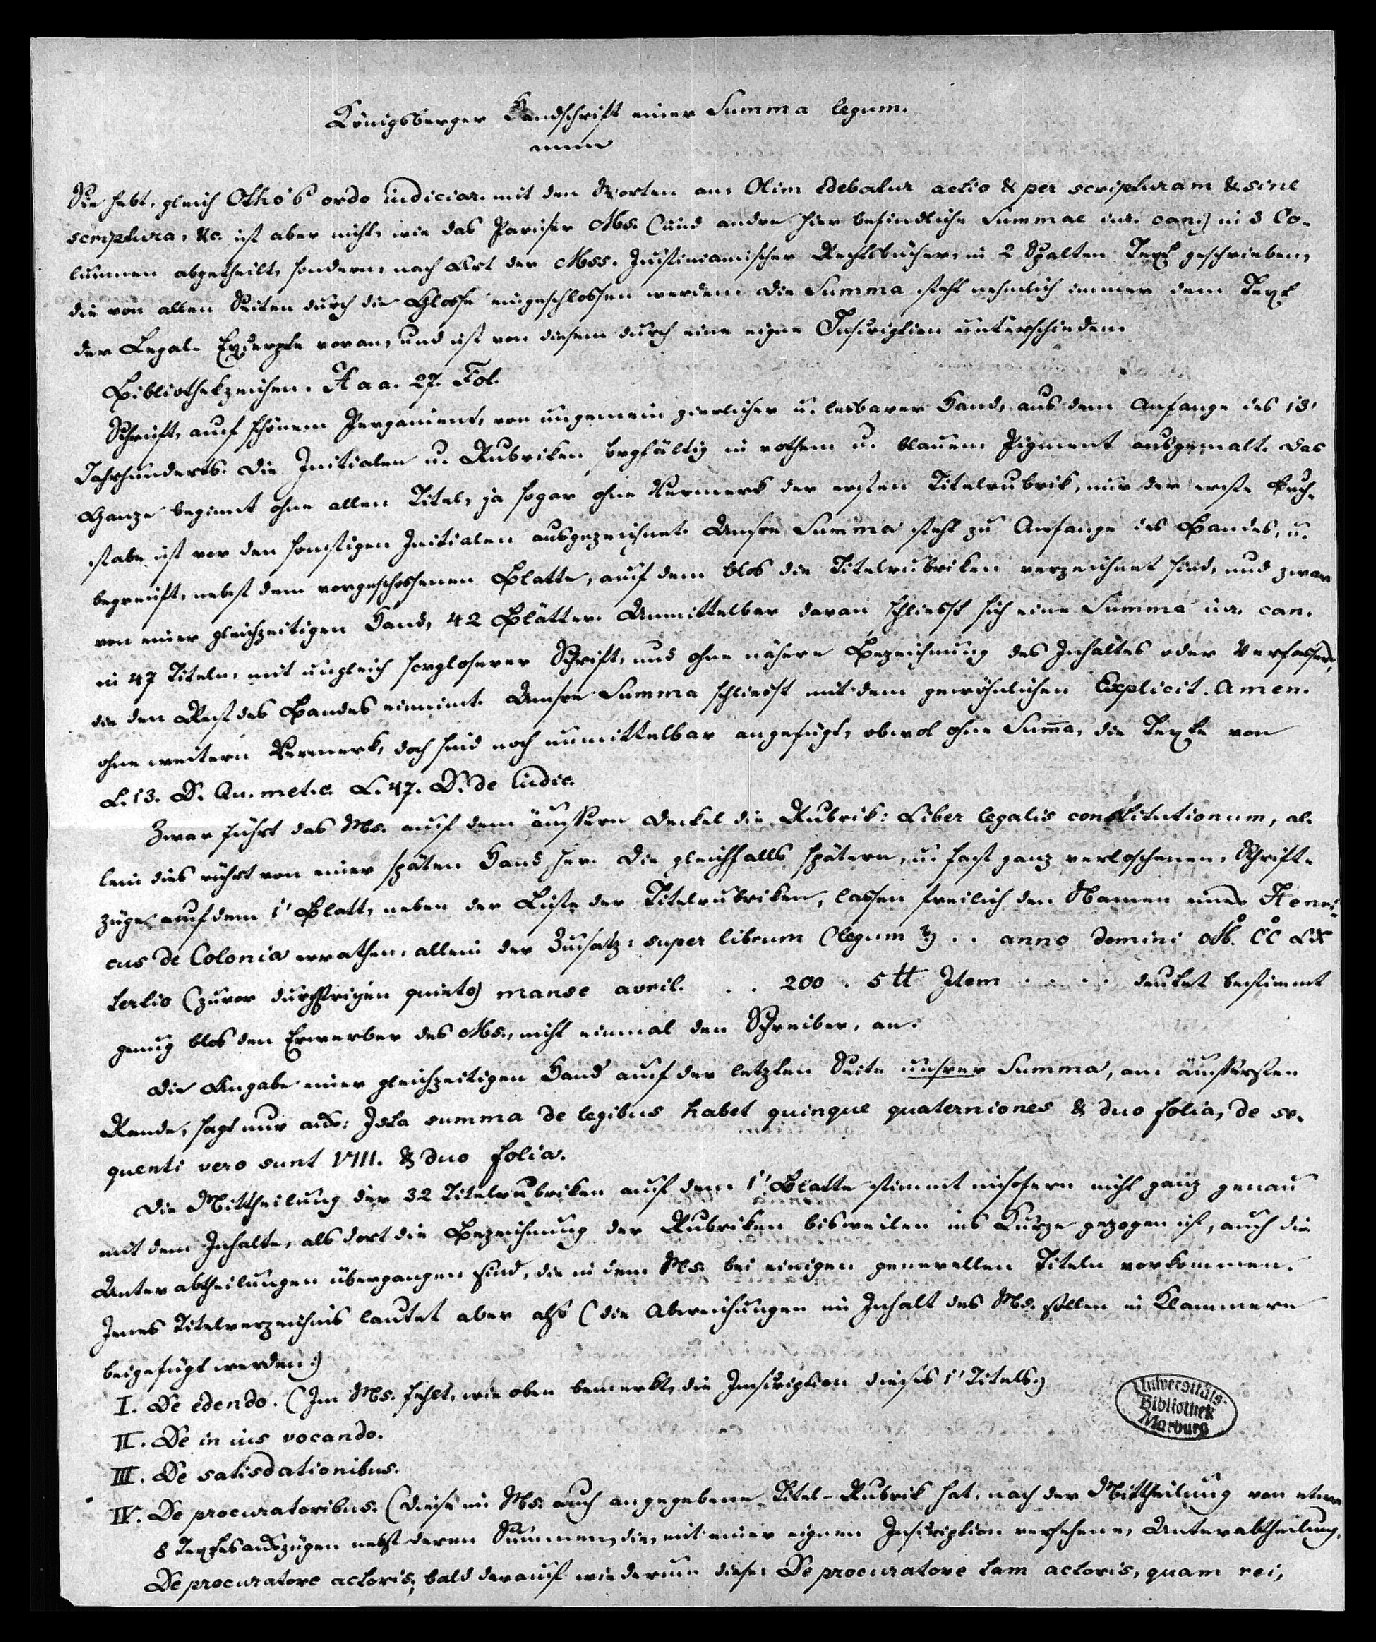 Königsberger Handschrift einer Summa legum.
Sie hebt, gleich Otho's ordo iudiciar. mit den Worten an: Olim edebatur actio & per scripturam & sine
scriptura, &c. ist aber nicht, wie das Pariser Ms. (und andre hier befindliche Summae iur. can.) in 3 Co-
lumnen abgetheilt, sondern, nach Art der Mss. Justinianischer Rechtsbücher, in 2 Spalten Text geschrieben,
die von allen Seiten durch die Glosse eingeschlossen werden. Die Summa steht nehmlich immer dem Text
der Legal-Excerpte voran, und ist von diesem durch eine eigne Inscription unterschieden.
Bibliothekzeichen. Aaa. 27. Fol.
Schrift, auf schönem Pergament, von ungemein zierlicher u. lesbarer Hand, aus dem Anfange des 13t
Jahrhunderts. Die Initialen u. Rubriken sorgfältig in rothem u. blauem Pigment ausgemalt. Das
Ganze beginnt ohne allen Titel, ja sogar ohne Vermerk der ersten Titelrubrik, nur der erste Buch-
stabe ist vor den sonstigen Initialen ausgezeichnet. Unsre Summa steht zu Anfange des Bandes, u.
begreift, nebst dem vorgeschossenen Blatte, auf dem blos die Titelrubriken verzeichnet sind, und zwar
von einer gleichzeitigen Hand, 42 Blätter. Unmittelbar daran schliesst sich eine Summa iur. can.
in 47 Titeln, mit ungleich sorgloserer Schrift, und ohne nähere Bezeichnung des Inhaltes oder Verfassers,
die den Rest des Bandes einnimt. Unsre Summa schliesst mit dem gewöhnlichen Explicit. Amen.
ohne weitern Vermerk, doch sind noch unmittelbar angefügt, obwol ohne Summa, die Texte von
L. 13. D. Qu. met. c. L. 47. D. de iudic.
Zwar führt das Ms. auf dem äussern Deckel die Rubrik: Liber legalis constitutionum, al-
lein dies rührt von einer späten Hand her. Die gleichfalls spätern, u. fast ganz verloschenen, Schrift-
züge auf dem 1t Blatt, neben der Liste der Titelrubriken, lassen freilich den Namen eines Henri-
cus de Colonia errathen, allein der Zusatz: super librum (legum?) . . anno domini M. CC LX
tertio (zuvor durchstrichen quinto) manse avril. . . 200 . 5 tt Item . . . . deutet bestimmt
genug blos den Erwerber des Ms., nicht einmal den Schreiber, an.
Die Angabe einer gleichzeitigen Hand auf der letzten Seite unsrer Summa, am äussersten
Rande, sagt nur aus: Ista summa de legibus habet quinque quaterniones & duo folia, de se-
quenti vero sunt VIII. & duo folia.
Die Mittheilung der 32 Titelrubriken auf dem 1t Blatte stimmt insofern nicht ganz genau
mit dem Inhalte, als dort die Bezeichnung der Rubriken bisweilen ins Kurze gezogen ist, auch die
Unterabtheilungen übergangen sind, die in dem Ms. bei einigen generellen Titeln vorkommen.
Jenes Titelverzeichnis lautet aber also (die Abweichungen im Inhalt des Ms. sollen in Klammern
beigefügt werden:)
I. De edendo. (Im Ms. fehlt, wie oben bemerkt, die Inscription dieses 1t Titels.)
II. De in ius vocando.
III. De satisdationibus.
IV. De procuratoribus. (Diese im Ms. auch angegebene Titel-Rubrik hat, nach der Mittheilung von etwa
8 Textesauszügen nebst deren Summen, die, mit einer eignen Inscription versehene, Unterabtheilung,
De procuratore actoris, bald darauf wiederum diese: De procuratore tam actoris, quam rei,
Universitäts-
Bibliothek
Marburg